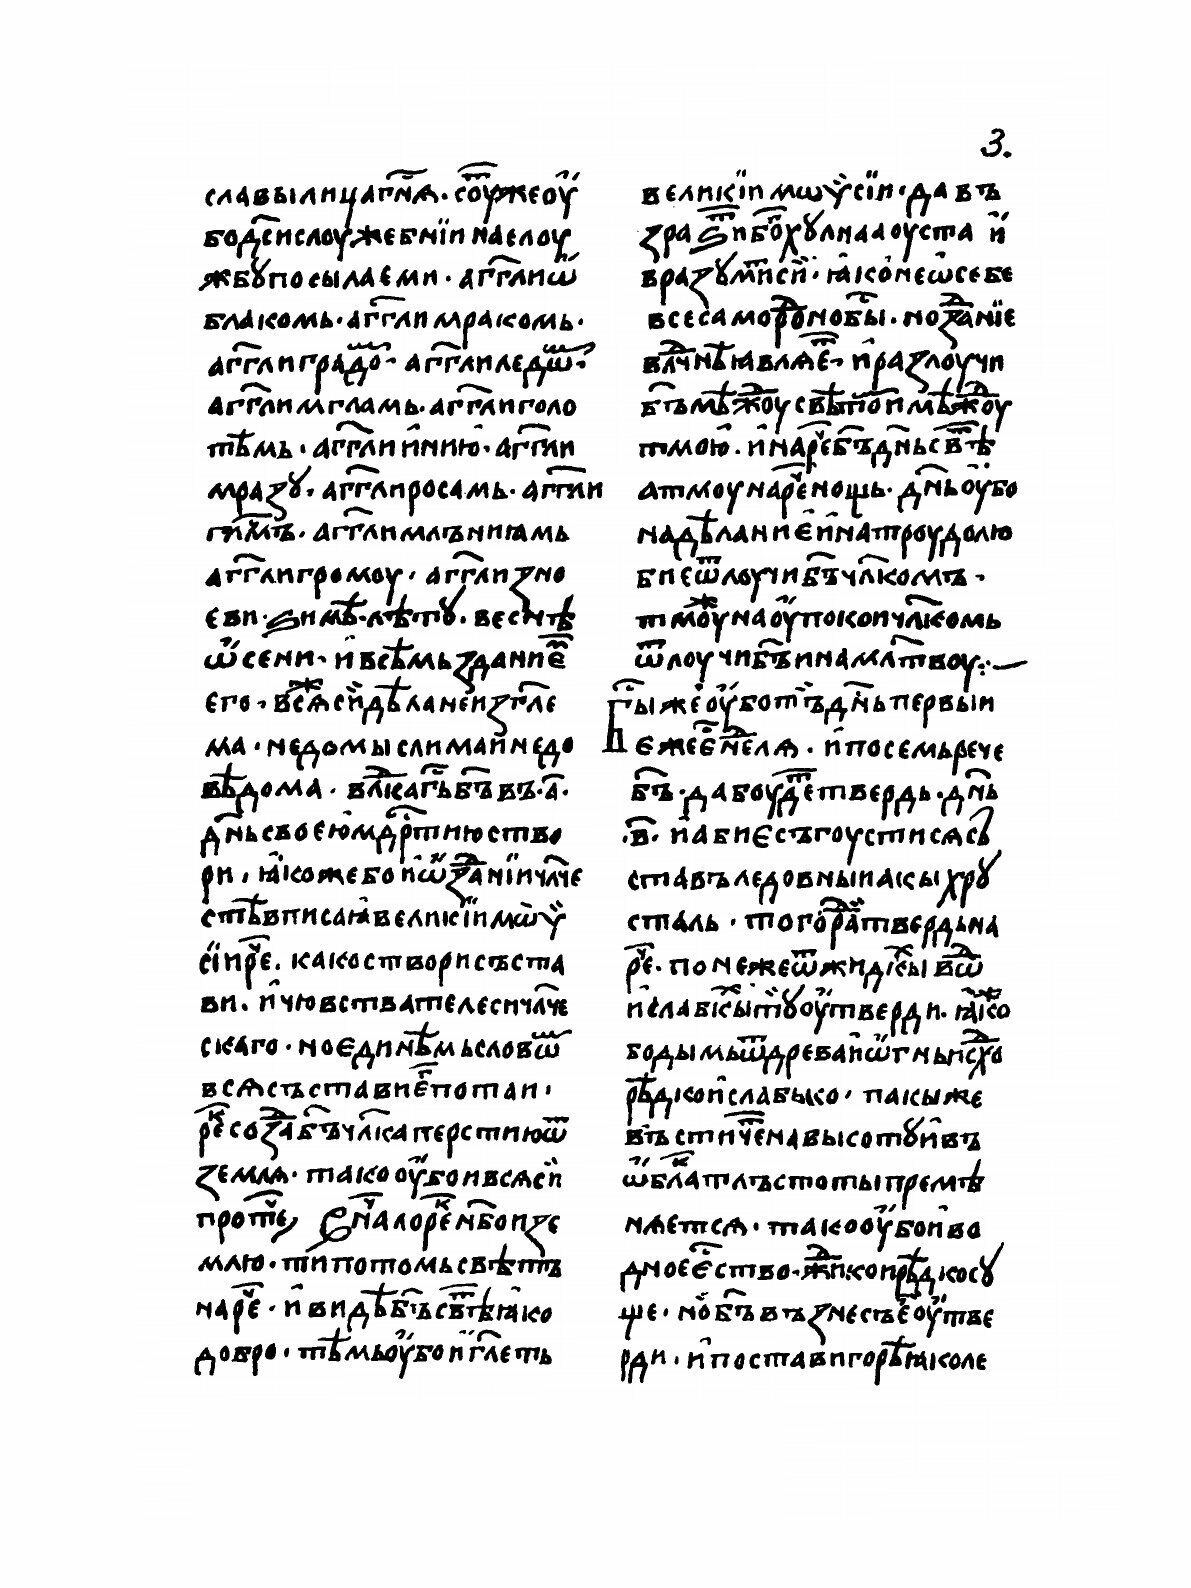 3.
славыи лица гн҃ѧ · соуⷮже оу҆
бо дс҃и слоужебнїи на слоу
жбꙋ посылаеми · агг҃ли ѿ
блакомь · агг҃ли мракомь ·
агг҃ли градоⷨ · агг҃ли ледѡⷨ ·
агг҃ли мгламь · агг҃ли голо
тѣмь · агг҃ли и҆нию҆ · агг҃ли
мразꙋ · агг҃ли росамь · агг҃ли
агг҃ли млънїамь
агг҃ли громоу · агг҃ли зно
еви · ѕими · лѣтꙋ · веснѣ
ѡ҆сени · и҆ всѣмь зданиеⷨ
его · всѧⷤ сїи҆ дѣланеи҆ зг҃ле
ма · недомыслима и҆ недо
вѣдома · влⷣка гь҃ бъ҃ въ · а҃ ·
дн҃ь своею҆ мдⷬ҇тию ство
ри · ꙗ҆коже бо и҆ ѡ҆ заⷣнїи члч҃е
стѣ вписаꙗ҆ великїи мѡѷ
сїи реⷱ҇ · како створи съста
ви · и҆ чювства телеси члч҃е
скаго · но единѣмь словѡⷨ
всѧ съставие҆ потаи ·
реⷦ҇ созⷣа бъ҃ члк҃а перстию ѿ
землѧ · тако оу҆бо и всѧ сїи
протⷱ҇е, сⷩ҇алореⷦ҇н бо и зе
млю · ти потомь свѣтъ
нареⷱ҇ · и҆ видѣ бъ҃ свⷮѣ ꙗ҆ко
добро · тѣмь оу҆бо и҆ гл҃еть
великїи мѡѷсїи · да въ
зразиⷮ бо҃хꙋлнаа оуста и҆
вразꙋмⷮи сїи҆ · ꙗ҆ко не ѡ҆ себе
все саморⷣоно бы҇ · но зⷣанїе
влⷣчнѣ ꙗ҆влѧеⷮ · и҆ разлоучи
бъ҃ мѣжⷣоу свѣтоⷨ и мѣжⷣоу
тмою҆ · и҆ нареⷱ҇ бъ҃ дн҃ь свⷮѣ
а тмоу нареⷱ҇ нощь · дн҃ь оу҆бо
на дѣланиѥ и҆ на троудолю
бие ѿлоучи бъ҃ члк҃омъ ·
тмоуⷤ на оу҆покои члк҃омь
ѿлоучи бъ҃ и на млт҃воу :·
Бы҇ же оу҆бо тъ҆ дн҃ь первыи
ѥже е҇ неⷣлѧ · и҆ по семь рече
бъ҃ · да боудеⷮ твердь · дн҃ь
·в҃· и҆ абиѥ съгоустисѧ съ
ставъ ледовныи акы хрꙋ
сталь · того раⷣ твердь на
реⷱ҇ · понеже ѿ жидⷦ҇ы воⷣ
и слабкⷯы тꙋ оу҆тверди · ꙗ҆коⷤ
бо дымь ѿ древа и҆ ѡ҆гнь исхⷣо
рѣдко и҆ слабько · пакы же
въ стиⷯ чⷮе на высотꙋ и҆ въ
ѡ҆блаⷦ тлъстоты премѣ
нѧетсѧ · тако оу҆бо и҆ во
дноее҇ство · жиⷣко и рѣдко сꙋ
ще · но҆ бъ҃ възнесъ е҆ оу҆тве
рди · и҆ постави горѣ ꙗ҆коле